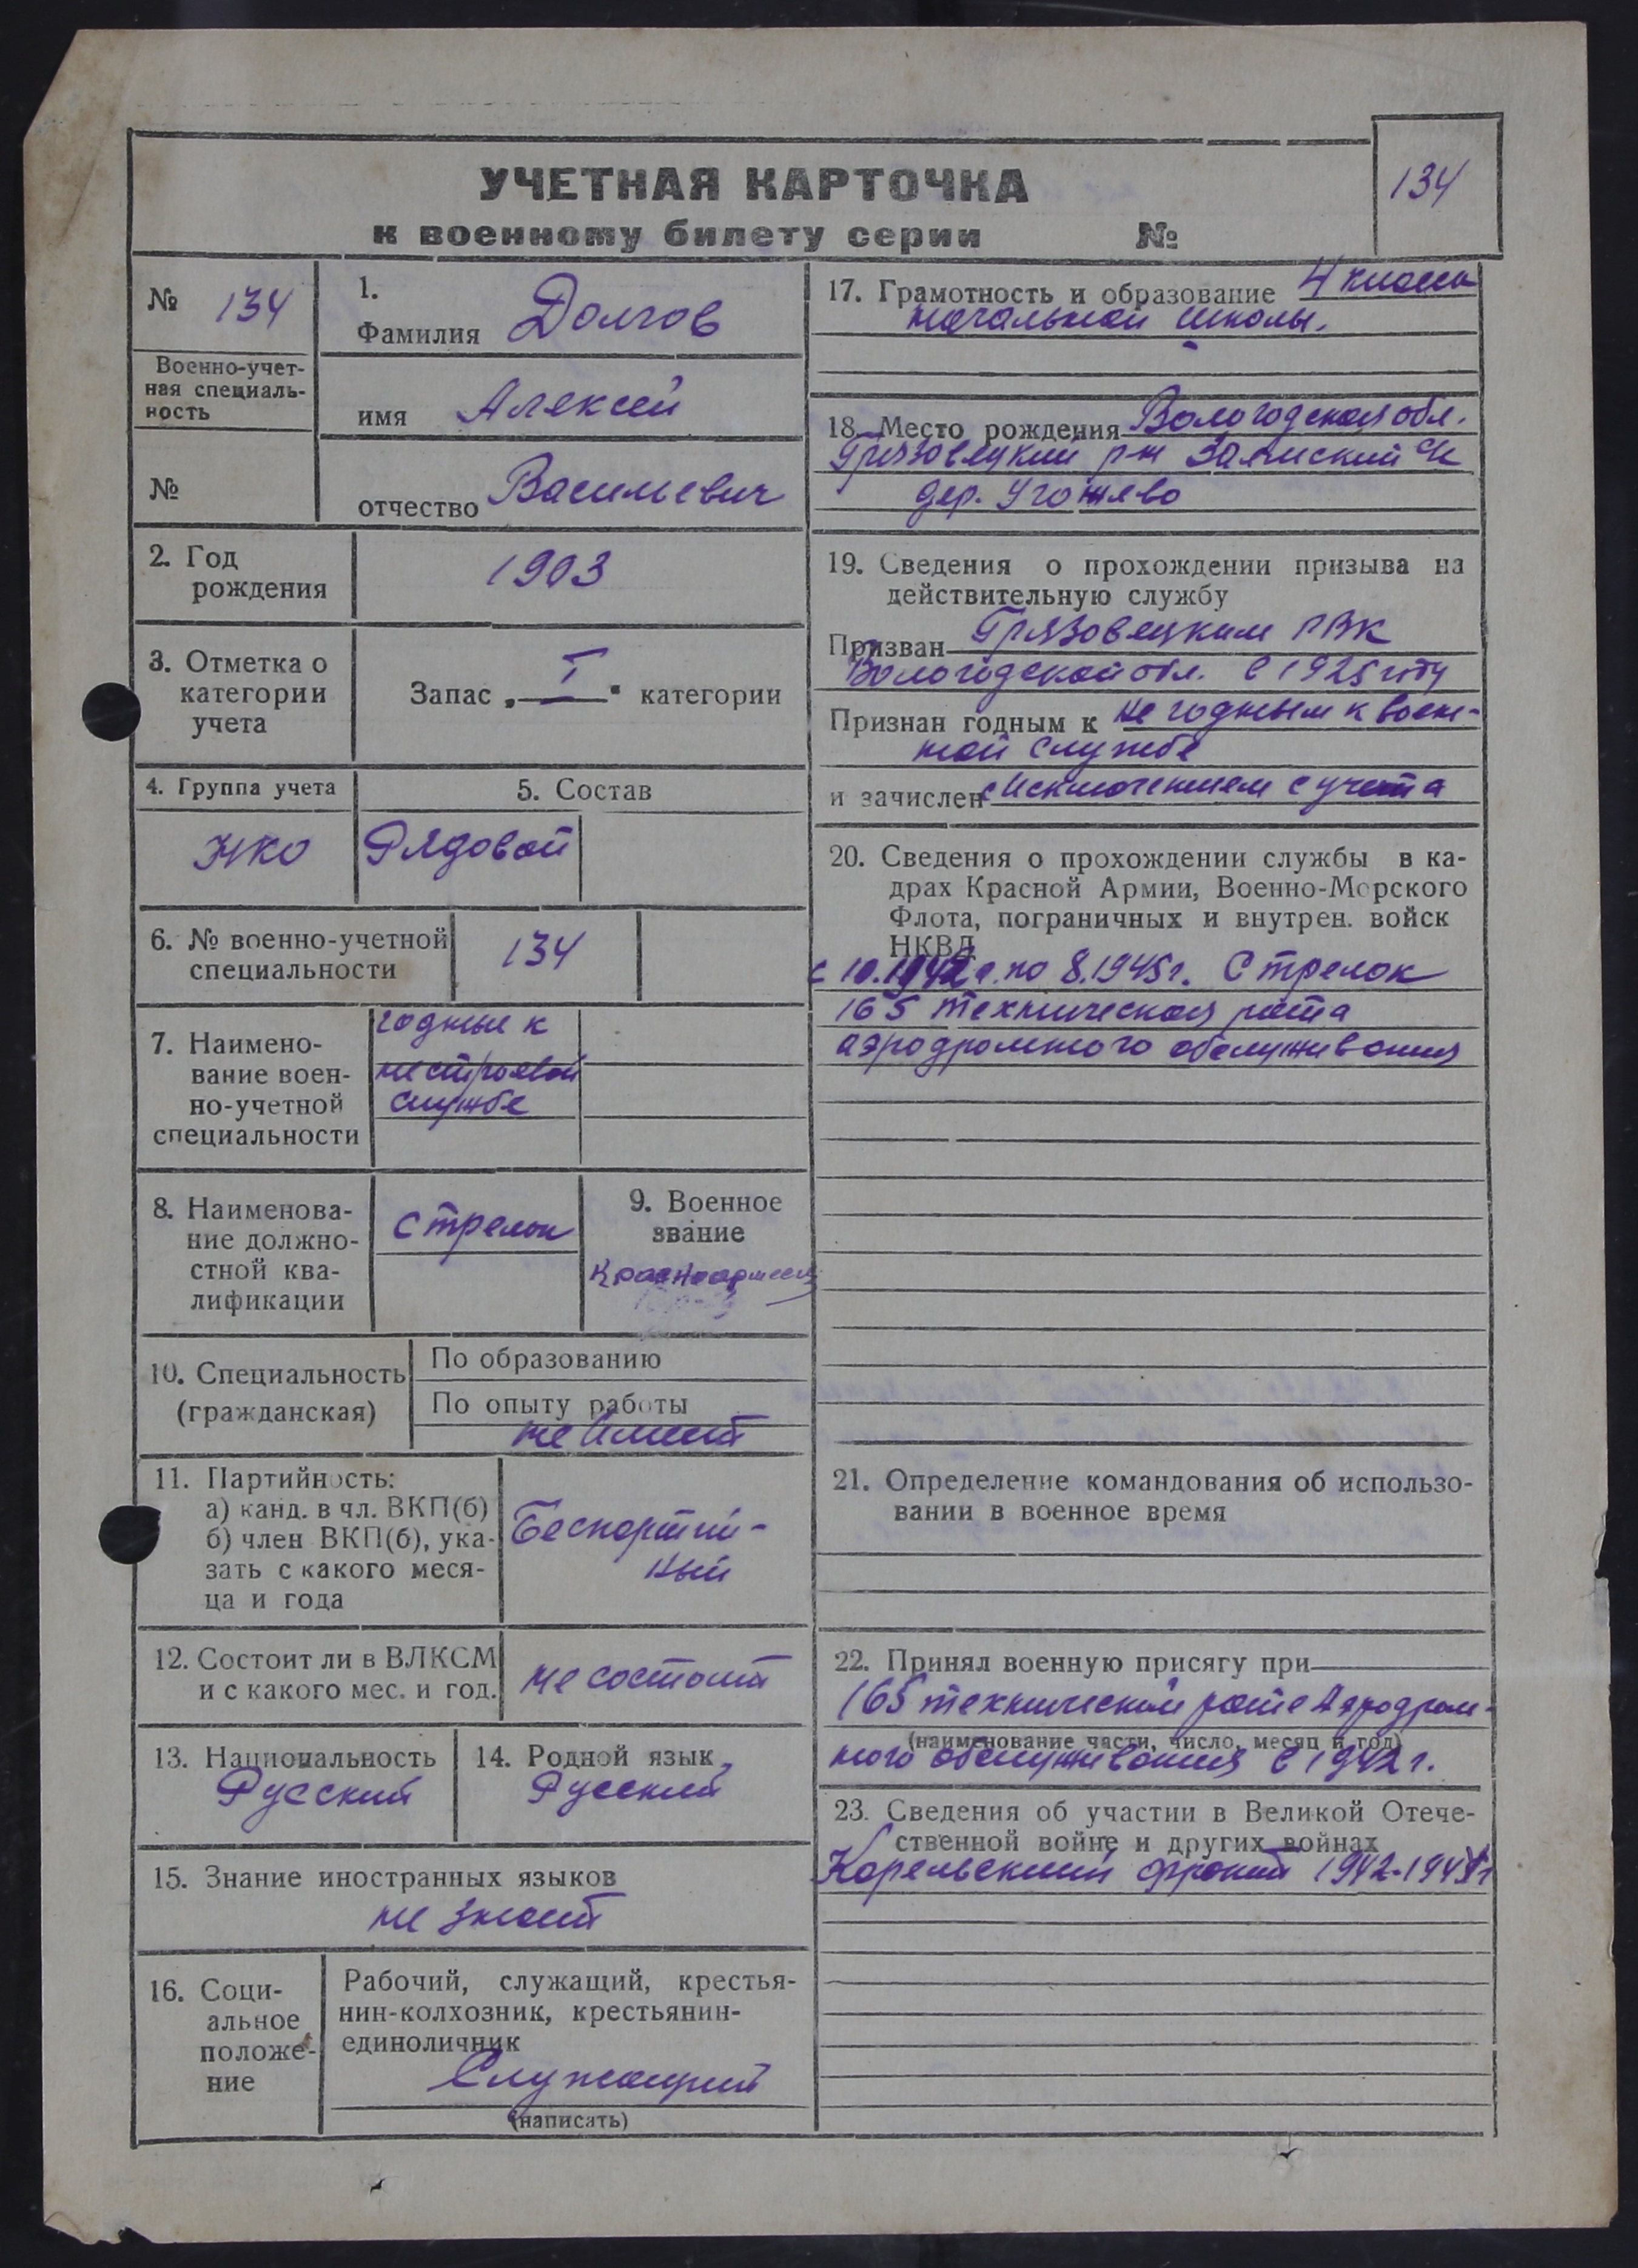 134
УЧЕТНАЯ КАРТОЧКА
к военному билету серии №
№ 134
Военно-учет-
ная специаль-
ность
№
1.
Фамилия Долгов
имя Алексей
отчество Васильевич
2. Год
рождения
1903
3. Отметка о
категории
учета
Запас „ I " категории
4. Группа учета
НКО
5. Состав
Рядовой
6. № военно-учетной
специальности
134
7. Наимено-
вание воен-
но-учетной
специальности
годные к
нестроевой
службе
8. Наименова-
ние должно-
стной ква-
лификации
стрелок
9. Военное
звание
Красноармеец
10. Специальность
(гражданская)
По образованию
По опыту работы
не имеет
11. Партийность:
а) канд. в чл. ВКП(б)
б) член ВКП(б), ука-
зать с какого меся-
ца и года
Беспартий-
ный
12. Состоит ли в ВЛКСМ
и с какого мес. и год.
не состоит
13. Национальность
Русский
14. Родной язык
Русский
15. Знание иностранных языков
не знает
16. Соци-
альное
положе-
ние
Рабочий, служащий, крестья-
нин-колхозник, крестьянин-
единоличник
Служащий
(написать)
17. Грамотность и образование 4 класса
начальной школы.
18. Место рождения Вологодская обл.
Грязовецкий р-н с/с
дер.
19. Сведения о прохождении призыва на
действительную службу
Призван Грязовецким РВК
Вологодской обл. в 1925 году
Признан годным к не годным к воен-
ной службе
и зачислен с исключением с учета
20. Сведения о прохождении службы в ка-
драх Красной Армии, Военно-Морского
Флота, пограничных и внутрен. войск
НКВД
с 10.1942 г. по 8.1945 г. Стрелок
165 техническая рота
аэродромного обслуживания
21. Определение командования об использо-
вании в военное время
22. Принял военную присягу при
165 технической роте Аэродром-
(наименование части, число, месяц и год)
ного обслуживания в 1942 г.
23. Сведения об участии в Великой Отече-
ственной войне и других войнах
Карельский фронт